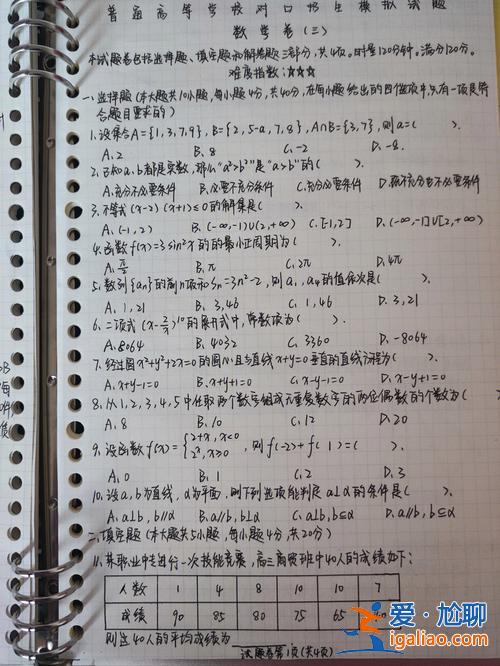 普通高等学校对口招生模拟试题
数学卷(三)
本试题卷包括选择题、填空题和解答题三部分,共4页。时量120分钟。满分120分。
难度指数:★★★
一、选择题(本大题共10小题,每小题4分,共40分,在每小题给出的四个选项中,只有一项是符
合题目要求的)
1.设集合A={1,3,7,9},B={2,5-a,7,8},A∩B={3,7},则a=( ).
A.2 B.8 C.-2 D.-8.
2.已知a、b都是实数,那么"a²>b²"是"a>b"的( ).
A.充分不必要条件 B.必要不充分条件 C.充分必要条件 D.既不充分也不必要条件
3.不等式(x-2)(x+1)≤0的解集是( ).
A.(-1,2) B.(-∞,-1)∪(2,+∞) C.[-1,2] D.(-∞,-1]∪[2,+∞)
4.函数f(x)=3sin²x的的最小正周期为( ).
A.π/2 B.π C.2π D.4π
5.数列{aₙ}的前n项和Sₙ=3n²-2,则a₁,a₄的值依次是( ).
A.1,21 B.3,46 C.1,46 D.3,21
6.二项式(x-2/x)¹⁰的展开式中,常数项为( ).
A.8064 B.4032 C.3360 D.-8064
7.经过圆x²+y²+2x=0的圆心且与直线x+y=0垂直的直线方程为( ).
A.x+y-1=0 B.x+y+1=0 C.x-y-1=0 D.x-y+1=0
8.从1,2,3,4,5中任取两个数字组成无重复数字的两位偶数的个数为( ).
A.8 B.10 C.12 D.20
9.设函数f(x)={2+x,x<0 2ˣ,x≥0,则f(-2)+f(1)=( ).
A.0 B.1 C.2 D.3
10.设a,b为直线,α为平面,则下列选项能判定a⊥α的条件是( ).
A.a⊥b,b∥α B.a∥b,b⊥α C.a⊥b,b⊆α D.a∥b,b⊆α
二、填空题(本大题共5小题,每小题4分,共20分)
11.某职业中专进行一次技能竞赛,高三商贸班中40人的成绩如下:
人数 1 4 8 10 10 7
成绩 90 85 80 75 65
则这40人的平均成绩为
试题卷第1页(共4页)
爱·尬聊
ingaliao.com